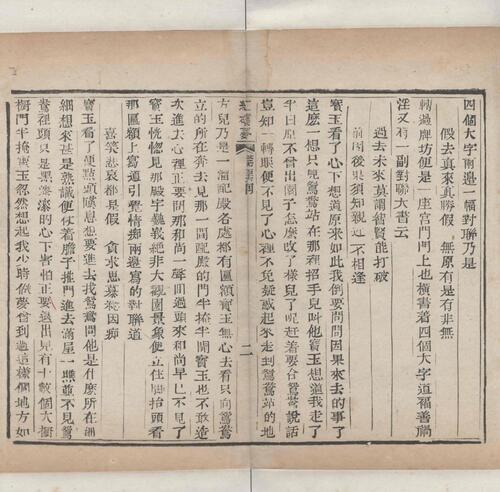 四個大字兩邊一幅對聯乃是
假去眞來眞勝假 無原有是有非無
轉過牌坊便是一座宫門門上也横書著四個大字道福善禍
淫又有一副對聯大書云
過去未來莫謂智賢能打破
前因後果須知親近不相逢
寳玉看了心下想道原來如此我倒要問問因果來去的事了
這麽一想只見鴛鴦站在那裡招手兒叫他寳玉想道我走了
半日原不曾出園子怎麽改了樣兒了呢赶着要合鴛鴦說話
豈知一轉眼便不見了心裡不免疑惑起來走到鴛鴦站的地
方兒乃是一溜配殿各處都有匾額寳玉無心去看只向鴛鴦
立的所在奔去見那一間配殿的門半掩半開寳玉也不敢造
次進去心裡正要問那和尚一聲囘過頭來和尚早已不見了
寳玉恍惚見那殿宇巍峩絶非大觀園景象便立住脚抬頭看
那匾額上寫道引覺情痴兩邊寫的對聯道
喜笑悲哀都是假 貪求思慕總因痴
寳玉看了便㸃頭嘆息想要進去找鴛鴦問他是什麽所在細
細想來甚是熟識便仗着膽子推門進去滿屋一瞧並不見鴛
鴦裡頭只是黑漆漆的心下害怕正要退出見有十數個大橱
橱門半掩寳玉忽然想起我少時做夢曾到過這樣個地方如
紅樓夢
二